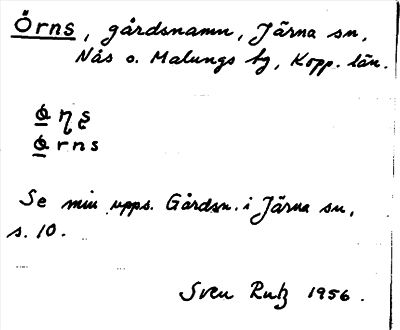 Örns, gårdsnamn, Järna sn,
Nås o. Malungs hg, Kopp. län.
ø̲ η ʂ
ø̲ r n s
Se min upps. Gårdsn. i Järna sn,
s. 10.
Sven Rutz 1956.